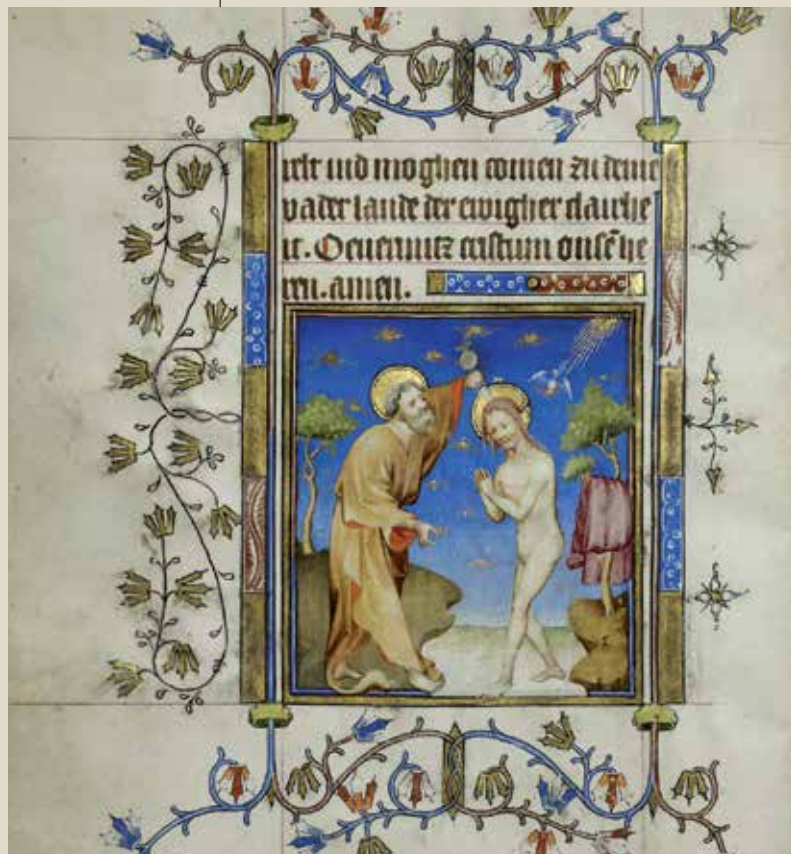 relt und moghen comen zu deme
vader lande der ewigher clairhe
it. Oeuermitz cristum onsē he
ren. amen.